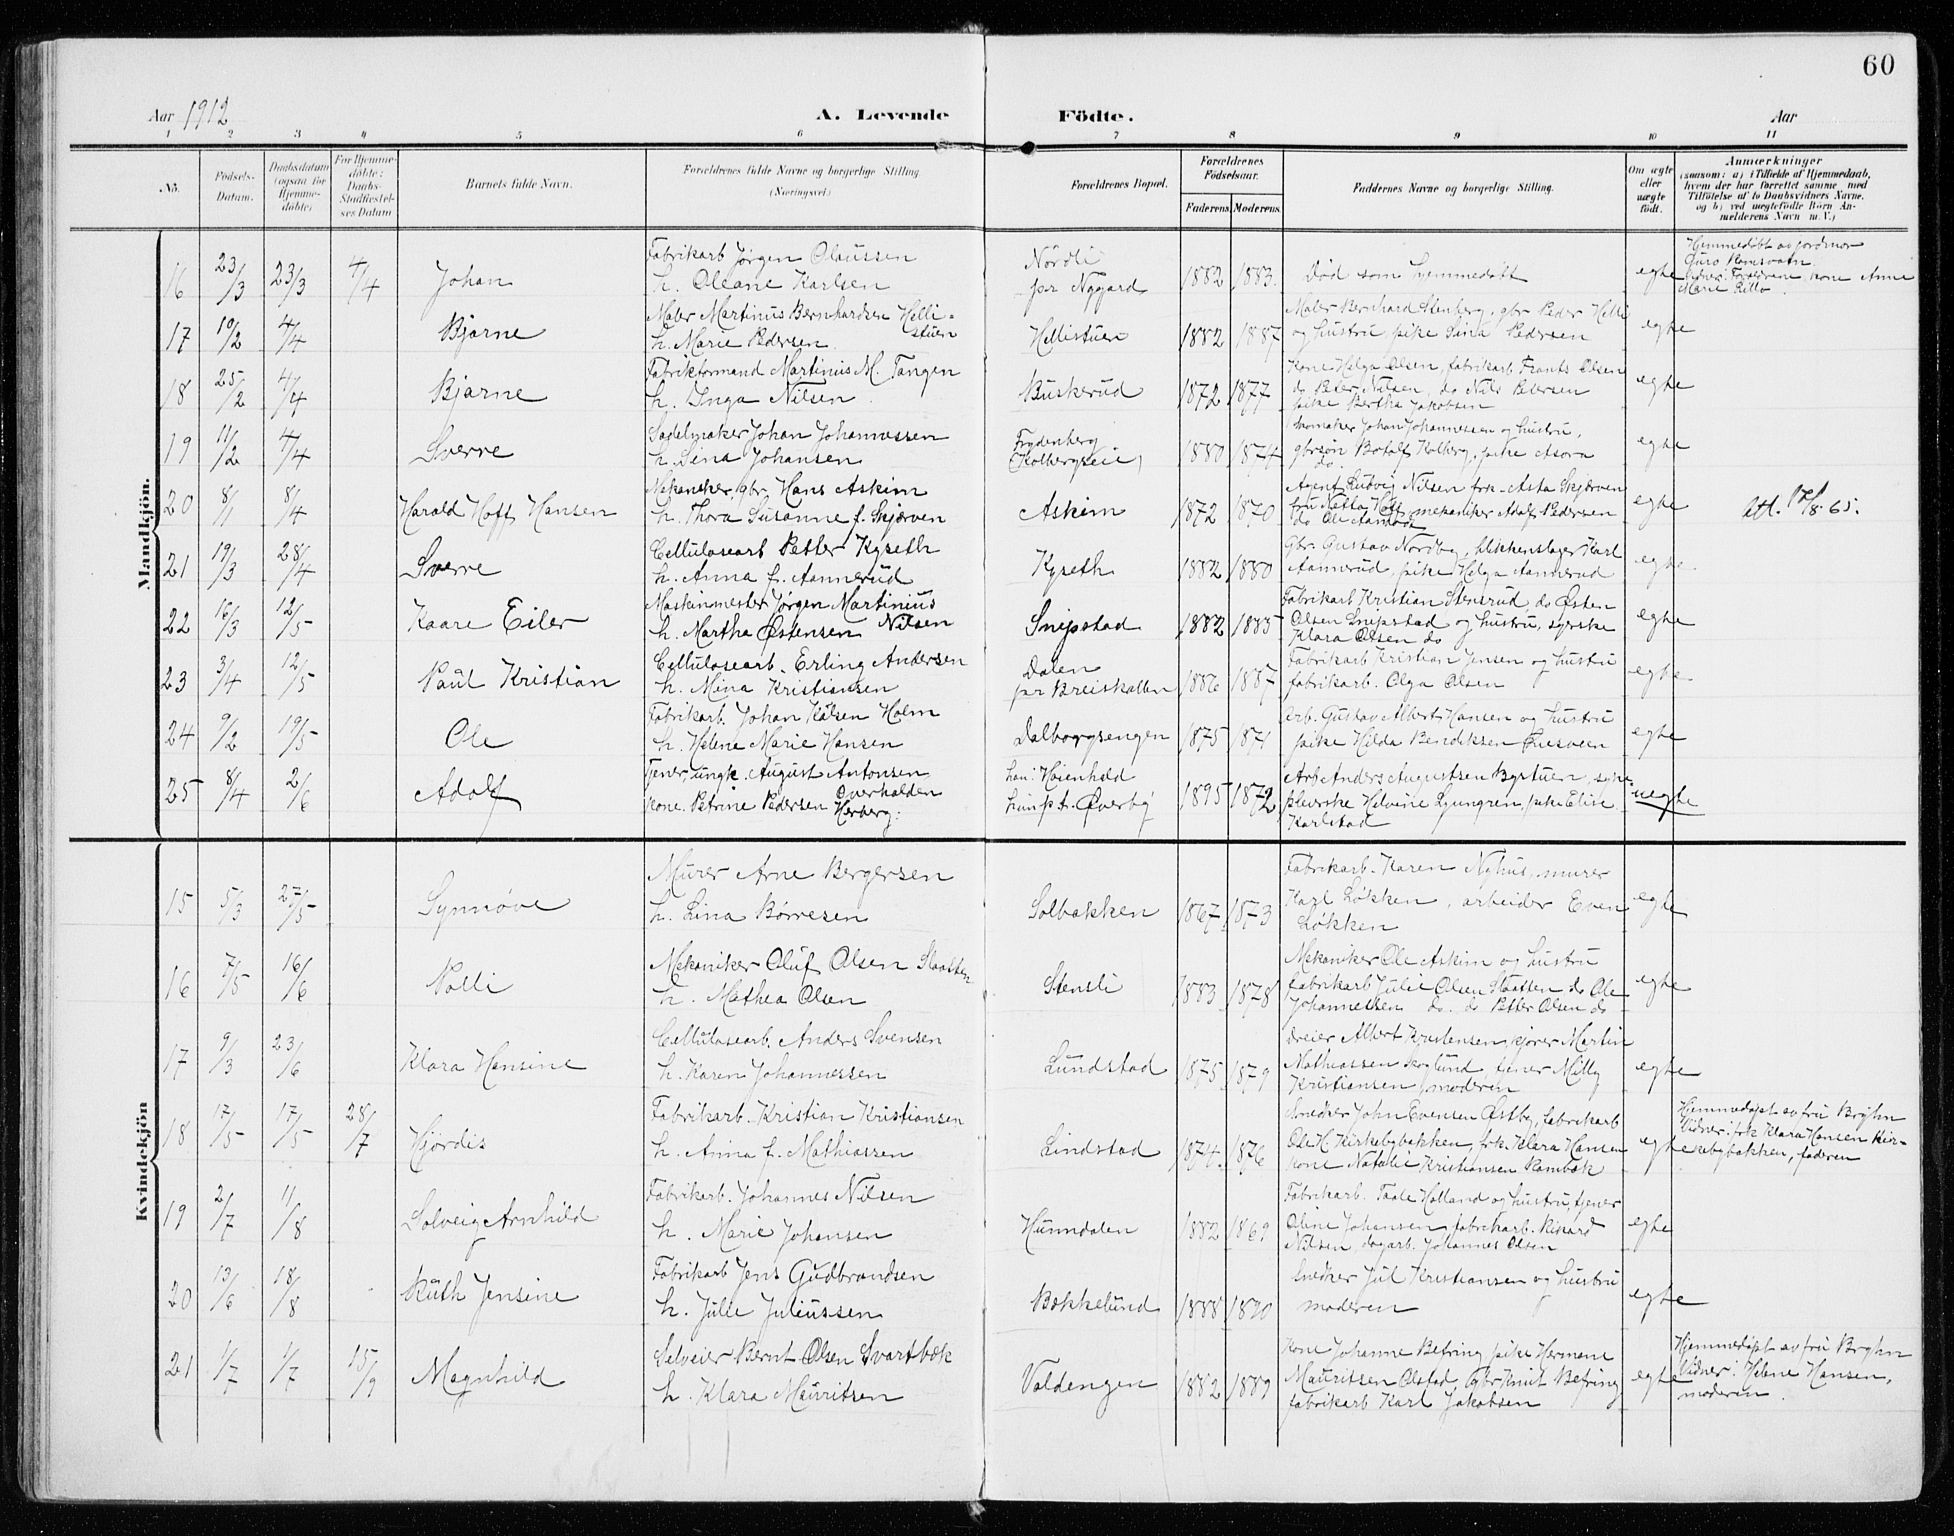 60
Aar 1912 A. Levende Födte. Aar
1 2 3 4 5 6 7 8 9 10 11
No. Födsels-Datum. Daabsdatum (ogsaa for Hjemmedöbte) For Hjemmedöbte: Daabs-Stadfæstelses Datum Barnets fulde Navn. Forældrenes fulde Navne og borgerlige Stilling. (Næringsvei.) Forældrenes Bopæl. Forældrenes Födselsaar. Faderens Moderens. Faddernes Navne og borgerlige Stilling. Om ægte eller uægte födt. Anmærkninger (saasom: a) i Tilfælde af Hjemmedaab, hvem der har forrettet samme med Tilföielse af to Daabsvidners Navne, og b) ved uægtefödte Börn Anmelderens Navn m. V.)
Mandkjön.
16 23/3 23/3 4/4 Johan Fabrikarb Jørgen Olaussen h. Oleane Karlsen Nordli pr Nygaard 1882 1883. Død som hjemmedøbt egte Hjemmedøbt av jordmor Guro Ramsvatn. Vidner: Forældrene kone Anne Marie
17 10/2 4/4 Bjarne Maler Martinus Bernhardsen Hellistuen h. Marie Pedersen. Hellistuen 1882 1887 Maler Bernhard Stenberg, gbr Peder Helli og hustru pike Lina Pedersen egte
18 25/2 4/4 Bjarne Fabrikformand Martinus M. Tangen h. Inga Nilsen. Buskerud 1872 1877 Kone Helga Olsen, fabrikarb. Frants Olsen do Peter Nilsen, do Nils Pedersen pike Bertha Jakobsen egte
19 11/2 4/4 Sverre Sadelmaker Johan Johannessen h. Lina Johansen Frydenberg Kolbergseie 1880 1874 Skomaker Johan Johannessen og hustru, gbrsøn Botolf Kolberg, pike Asora do. egte
20 8/1 8/4 Harald Hoff Hansen Mekaniker, gbr. Hans Askim h. Thora Susanne f. Skjærven Askim 1872 1870 Agent Ludvig Nilsen frk. Asta Skjærven fru Netta Hoff, mekaniker Adolf Pedersen do Ole Aamodt egte att. 17/8.65.
21 19/3 28/4 Sverre Cellulosearb Petter Kyseth h. Anna f. Aannerud Kyseth 1882 1880 Gbr. Gustav Nordby, blikkenslager Karl Aannerud, pike Helga Aannerud egte
22 16/3 12/5 Kaare Eiler Maskinmester Jørgen Martinius Nilsen h. Martha Østensen Snipstad 1882 1885 Fabrikarb Kristian Stensrud, do Østen Olsen Snipstad og hustru, syerske Klara Olsen do egte
23 3/4 12/5 Paul Kristian Cellulosearb. Erling Andersen h. Mina Kristiansen Dalen pr Breiskallen 1886 1887 Fabrikarb Kristian Jensen og hustru fabrikarb. Olga Olsen egte
24 9/2 19/5 Ole Fabrikarb. Johan Kalsen Holm h. Helene Marie Hansen Dalborgsengen 1875 1871 Arb. Gustav Albert Hansen og hustru pike Hilda Bendiksen Onsveen egte
25 8/4 2/6 Adolf Tjener, ungk. August Antonsen Overhalden kone. Petrine Pedersen Herberg: han: Høienhald hun: p.t. Øverby 1895 1872 Arb Anders Augustsen Bystuen, sypleierske Helvine Ljungren, pike Elise Karlstad uegte
Kvindekjön
15 5/3 27/5 Synnøve Murer Arne Bergersen h. Lina Børresen Solbakken 1867 1873 Fabrikarb. Karen Nyhus, murer Karl Løkken, arbeider Even Løkken egte
16 7/5 16/6 Nolli Mekaniker Oluf Olsen Slaatten h. Mathea Olsen Stenli 1883 1878 Mekaniker Ole Askim og hustru fabrikarb Julie Olsen Slaatten do Ole Johannessen do. do Petter Olsen do egte
17 9/3 23/6 Klara Hansine Cellulosearb. Anders Svensen h. Karen Johannessen Lundstad 1875 1879 Dreier Albert Kristensen, kjører Martin Mathiassen Skoglund, tjener Milly Kristiansen, moderen egte
18 17/5 17/5 28/7 Hjørdis Fabrikarb. Kristian Kristiansen h. Anna f. Mathiassen Lindstad 1874. 1876 Snedker John Evensen Østby, fabrikarb Ole H. Kirkebybakken, frk. Klara Hansen kone Natalie Kristiansen Rambæk egte Hjemmedøpt av fru Bryhn Vidner: frk Klara Hansen Kirkebybakken, faderen
19 2/7 11/8 Solveig Arnhild Fabrikarb. Johannes Nilsen h. Marie Johansen Hunndalen 1882 1869 Fabrikarb. Taale Holland og hustru, tjener Oline Johansen, fabrikarb. Rikard Nilsen, dagarb. Johannes Olsen egte
20 13/6 18/8 Ruth Jensine Fabrikarb Jens Gudbrandsen h. Julie Juliussen Bakkelund 1888 1890 Snedker Jul Kristiansen og hustru moderen egte
21 1/7 1/7 15/9 Magnhild Selveier Bernt Olsen Svartbæk h. Klara Mauritsen Valdengen 1882 1889 Kone Johanne Betring pike Hermene Mauritsen Olstad, gbr Knut Betring fabrikarb Karl Jakobsen egte Hjemmedøpt av fru Bryhn Vidner: Helene Hansen, moderen.